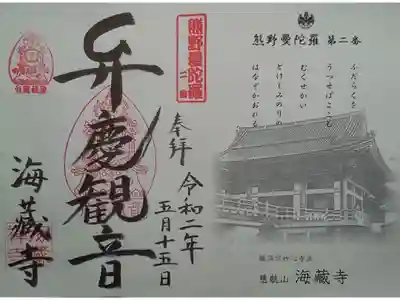 熊野曼陀羅 第二番
ふだらくを
うつせばここも
むくせかい
とけしみのりの
はなぞかおれる
臨済宗妙心寺派
海蔵寺
熊野曼陀羅
二番
奉拝
令和二年
五月十五日
弁慶観音
海蔵寺